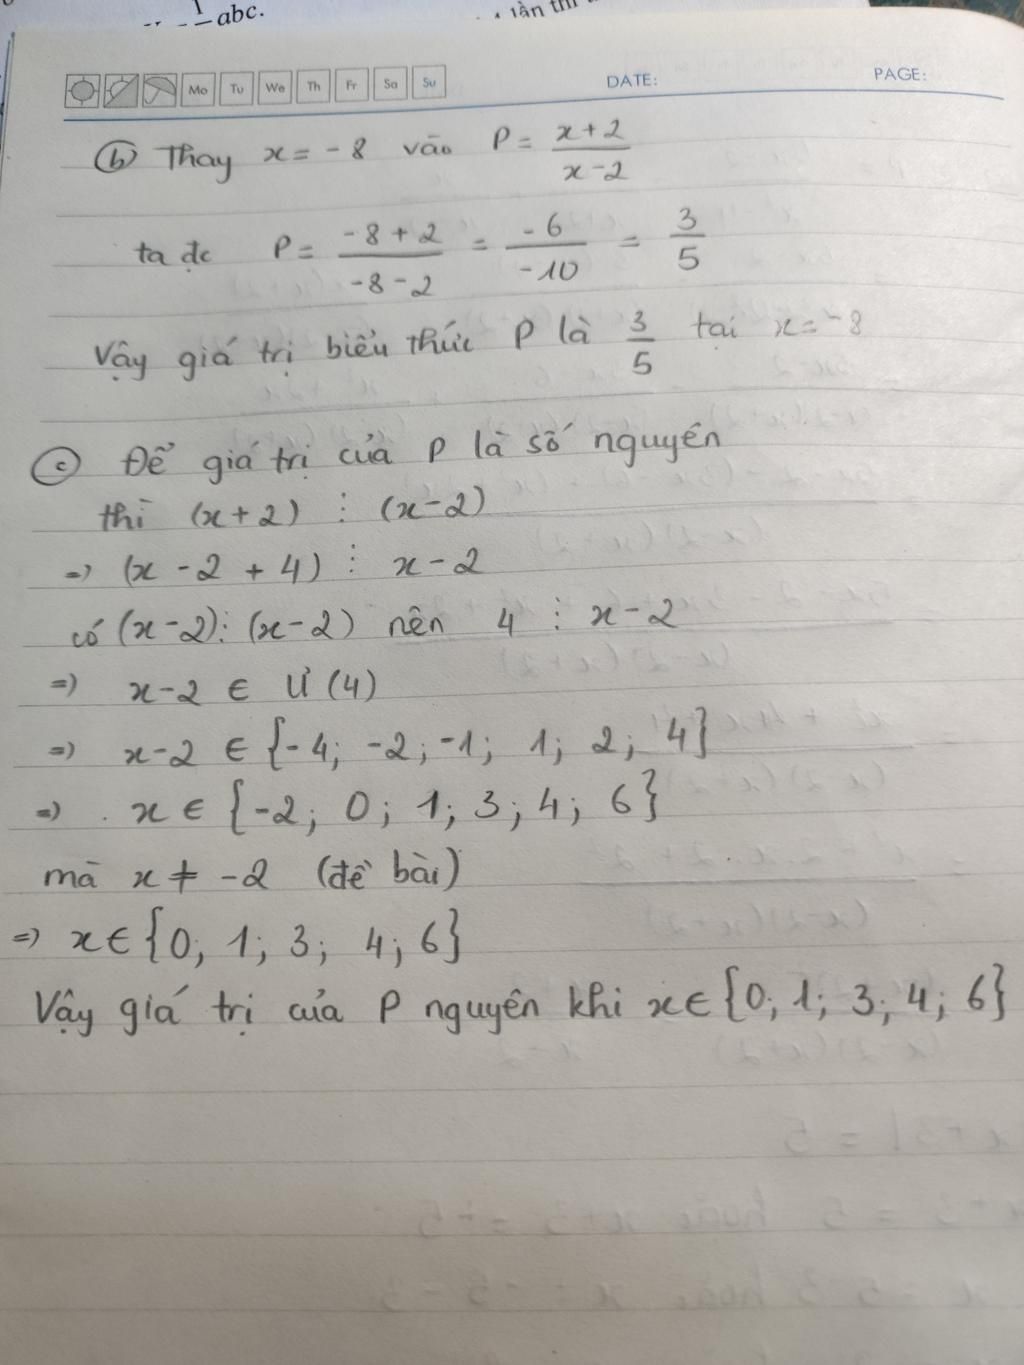 1/abc.
Mo Tu We Th Fr Sa Su DATE: PAGE:
b) Thay x = -8 vào P = (x+2)/(x-2)
ta đc P = (-8+2)/(-8-2) = -6/-10 = 3/5
Vậy giá trị biểu thức P là 3/5 tại x = -8
c) Để giá trị của P là số nguyên
thì (x+2) ⋮ (x-2)
=> (x-2+4) ⋮ x-2
có (x-2) ⋮ (x-2) nên 4 ⋮ x-2
=> x-2 ∈ Ư(4)
=> x-2 ∈ {-4; -2; -1; 1; 2; 4}
=> x ∈ {-2; 0; 1; 3; 4; 6}
mà x ≠ -2 (đề bài)
=> x ∈ {0; 1; 3; 4; 6}
Vậy giá trị của P nguyên khi x ∈ {0; 1; 3; 4; 6}